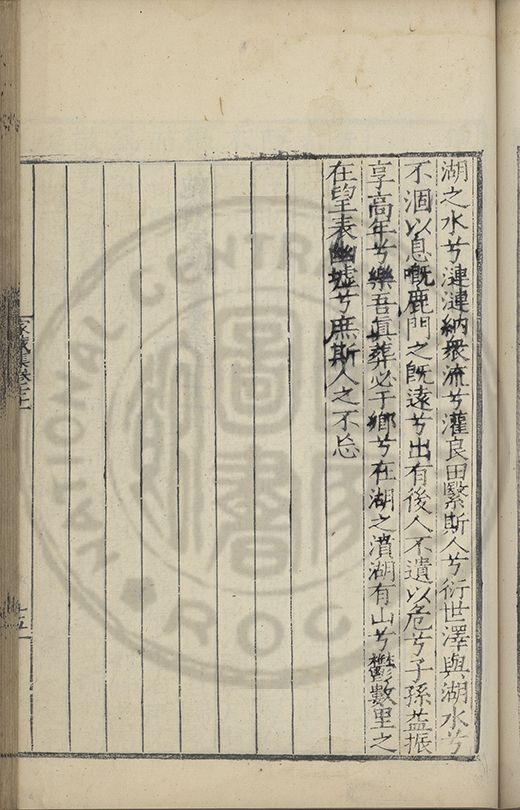 湖之水兮漣漣納衆流兮灌良田繄斯人兮衍世澤與湖水兮
不涸以息嘅鹿門之旣遠兮出有後人不遺以危兮子孫益振
享高年兮樂吾眞葬必于鄉兮在湖之濆湖有山兮鬱數里之
在望表幽墟兮庶斯人之不忘
家藏集卷
NATIONAL CENTRAL
ROC